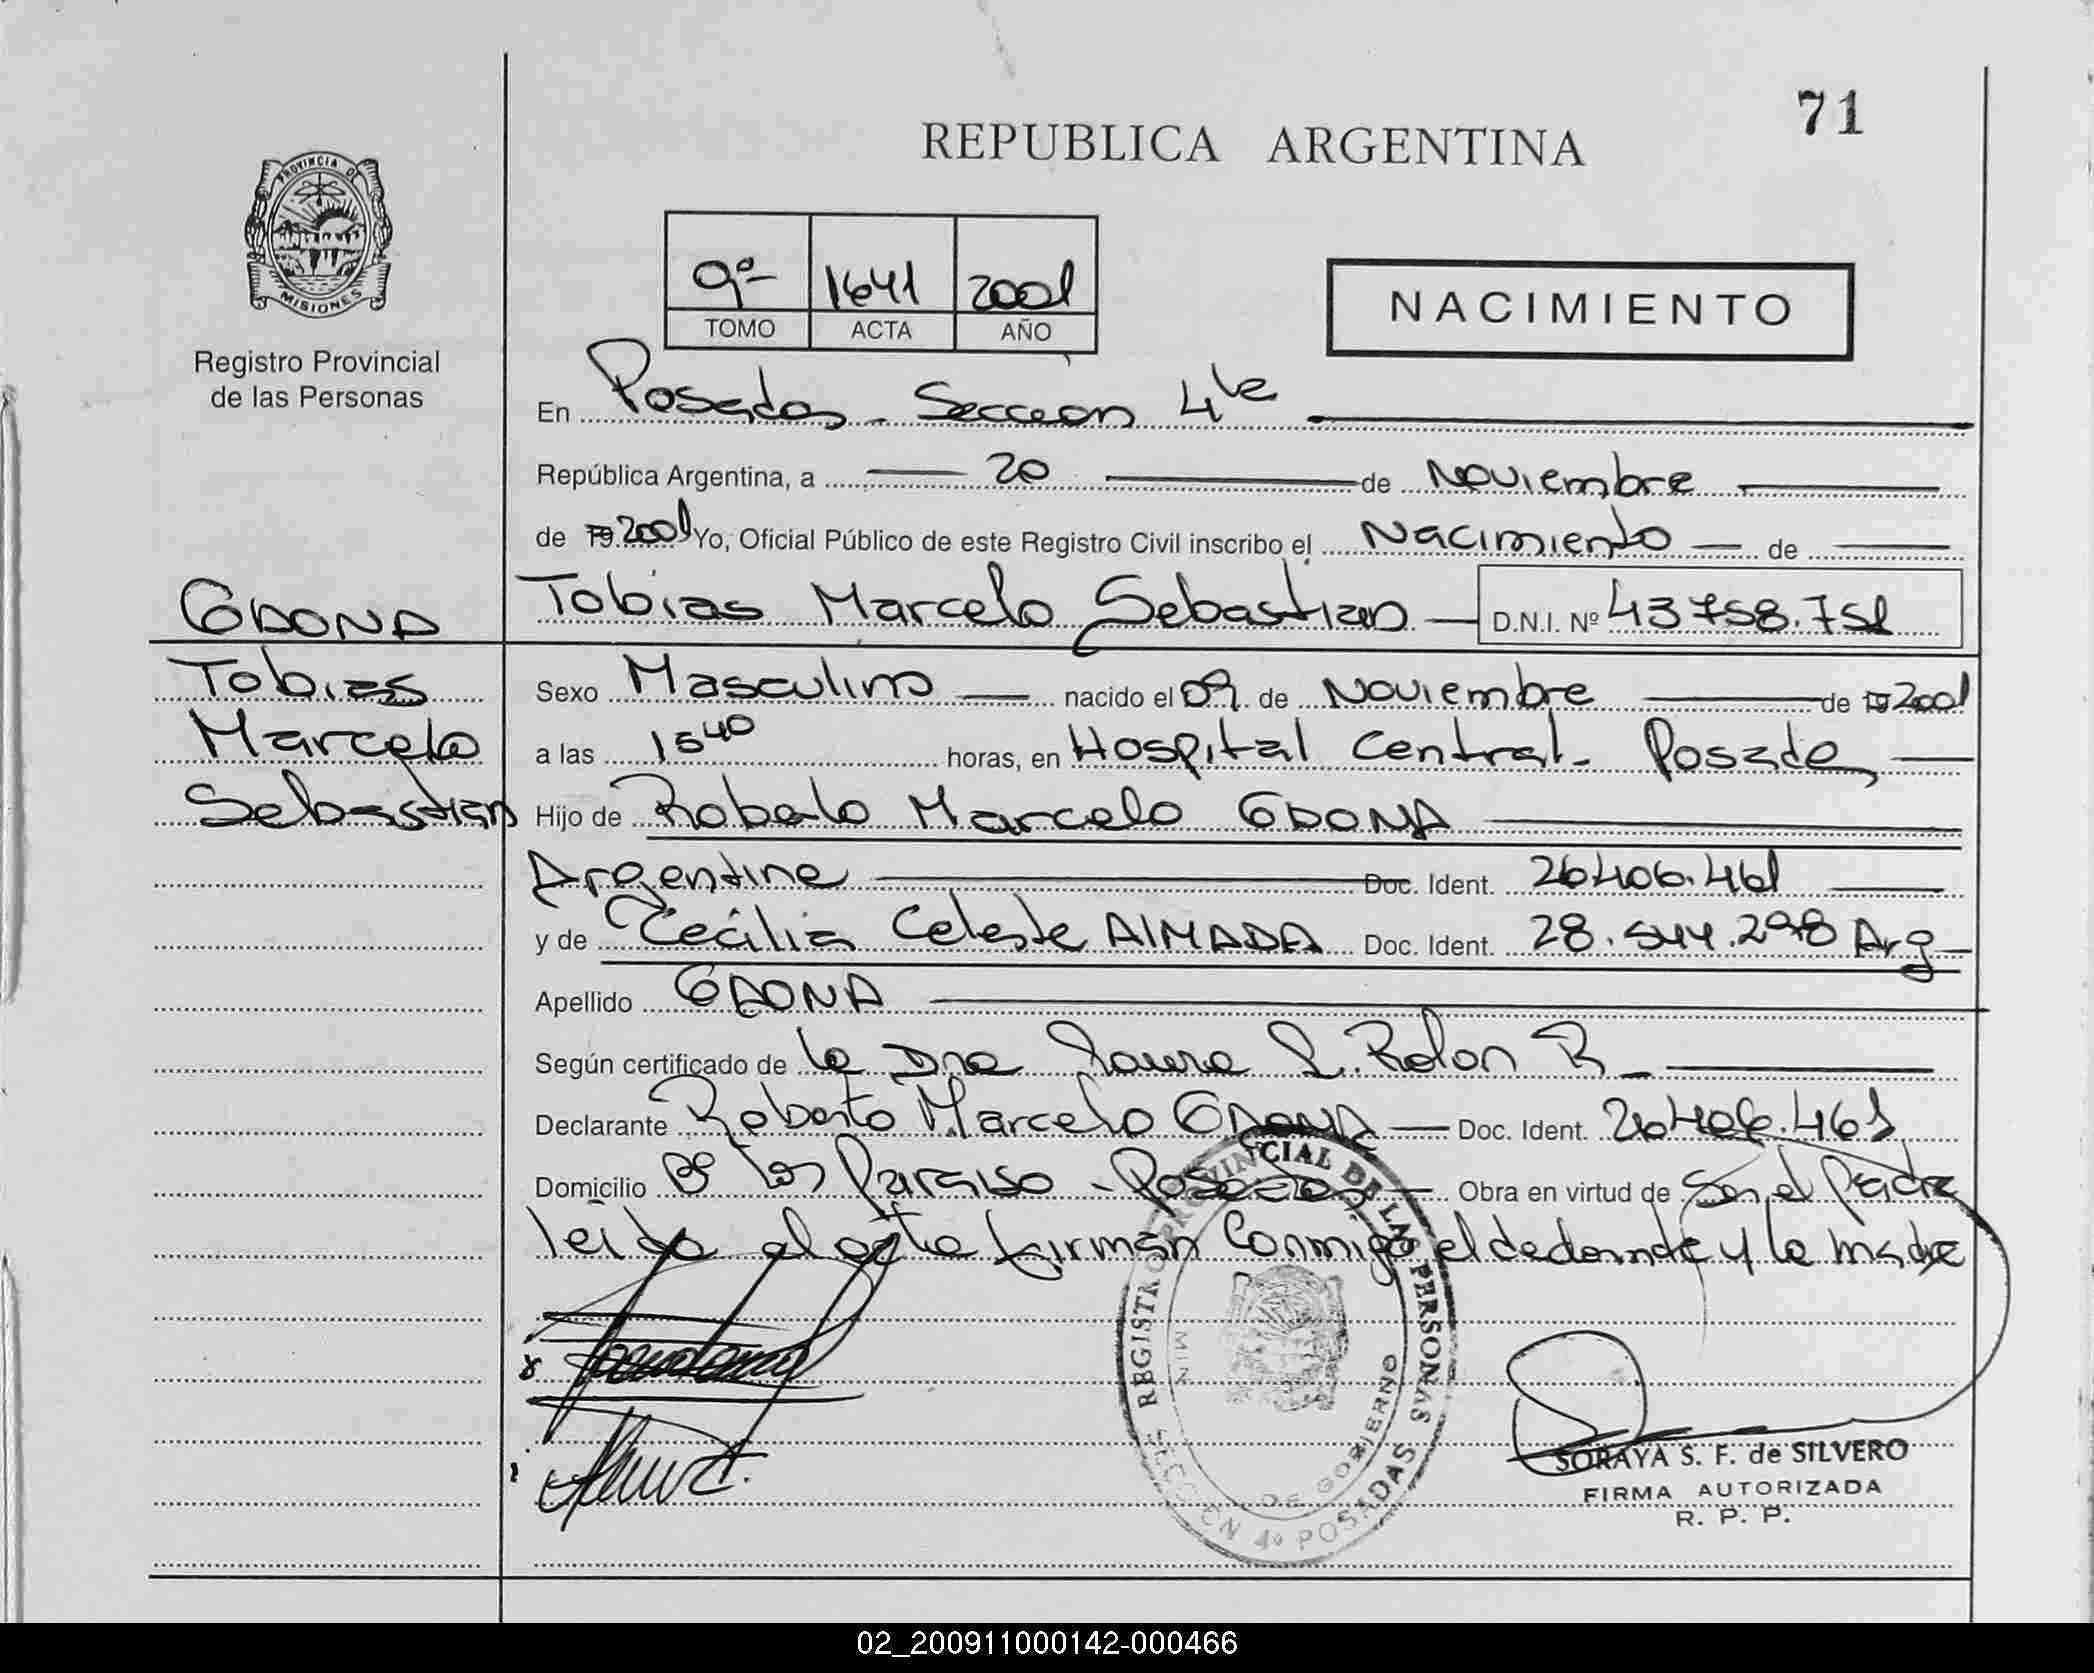 71
REPUBLICA ARGENTINA
PROVINCIA DE
MISIONES
Registro Provincial
de las Personas
9º 1641 2001
TOMO ACTA AÑO
NACIMIENTO
En Posadas - Seccion 4ta
República Argentina, a 20 de Noviembre
de 19 2001 Yo, Oficial Público de este Registro Civil inscribo el Nacimiento de
Tobias Marcelo Sebastian D.N.I. Nº 43758.751
GDONA
Tobias
Marcelo
Sebastian
Sexo Masculino nacido el 09 de Noviembre de 19 2001
a las 1540 horas, en Hospital Central - Posadas
Hijo de Roberto Marcelo GDONA
Argentina Doc. Ident. 26406.461
y de Cecilia Celeste AlMADA Doc. Ident. 28.544.298 Arg
Apellido GDONA
Según certificado de la Dra Laura L. Rolon R
Declarante Roberto Marcelo GDONA Doc. Ident. 26406.461
Domicilio Bº Los Paraiso - Posadas Obra en virtud de Ser el Padre
leida el acta firman Conmigo el declarante y la madre
REGISTRO PROVINCIAL DE LAS PERSONAS
MIN DE GOBIERNO
SECCION 4º POSADAS
SORAYA S. F. de SILVERO
FIRMA AUTORIZADA
R. P. P.
02_200911000142-000466